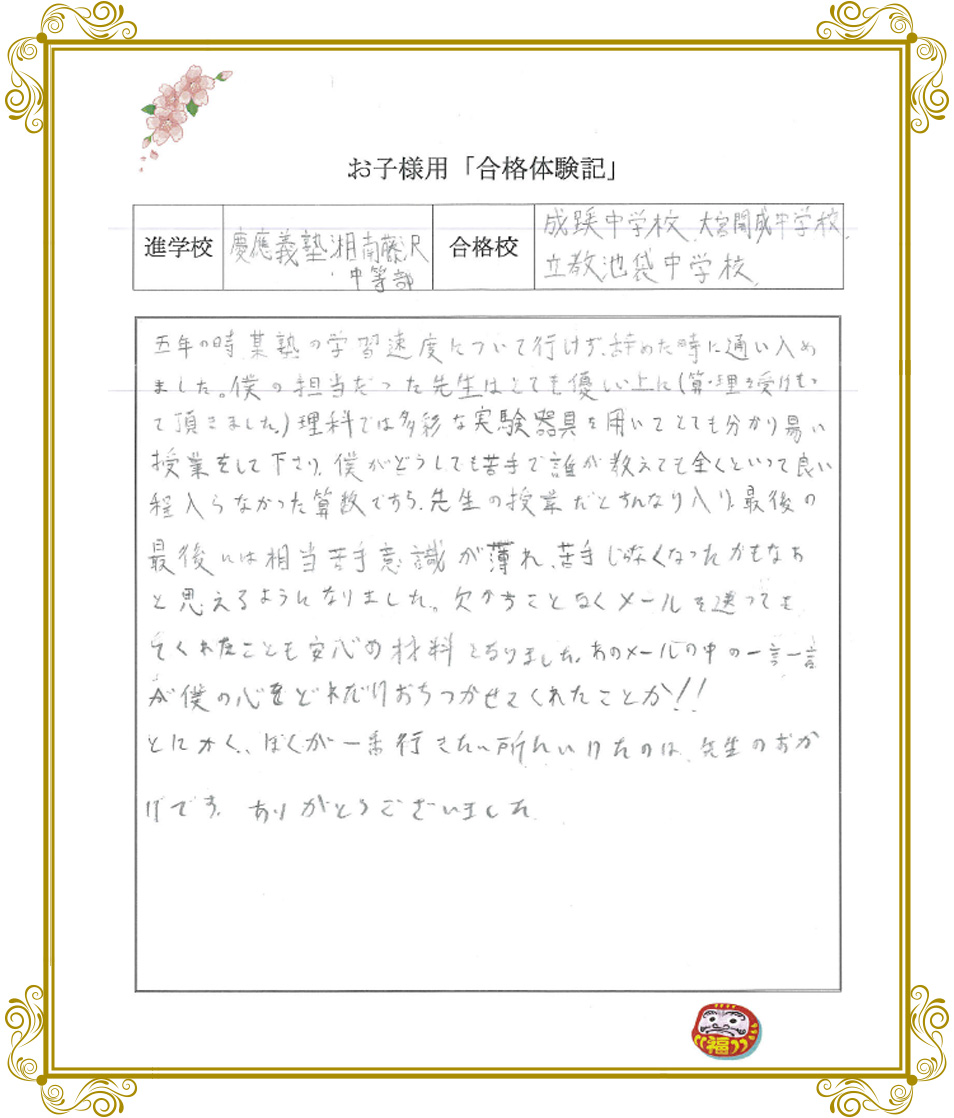 お子様用「合格体験記」
進学校
慶應義塾湘南藤沢
中等部
合格校
成蹊中学校、大宮開成中学校、
立教池袋中学校、
五年の時某塾の学習速度について行けず、辞めた時に通い入め
ました。僕の担当だった先生はとても優しい上に(算・理を受けもっ
て頂きました。)理科では多彩な実験器具を用いてとても分かり易い
授業をして下さり、僕がどうしても苦手で誰が教えても全くといって良い
程入らなかった算数ですら、先生の授業だとすんなり入り、最後の
最後には相当苦手意識が薄れ、苦手じゃなくなったかもなあ
と思えるようになりました。欠かすことなくメールを送っても
くれたことも安心の材料となりました。あのメールの中の一言一言
が僕の心をどれだけおちつかせてくれたことか!!
とにかく、ぼくが一番行きたい所にいけたのは、先生のおか
げです。ありがとうございました
福